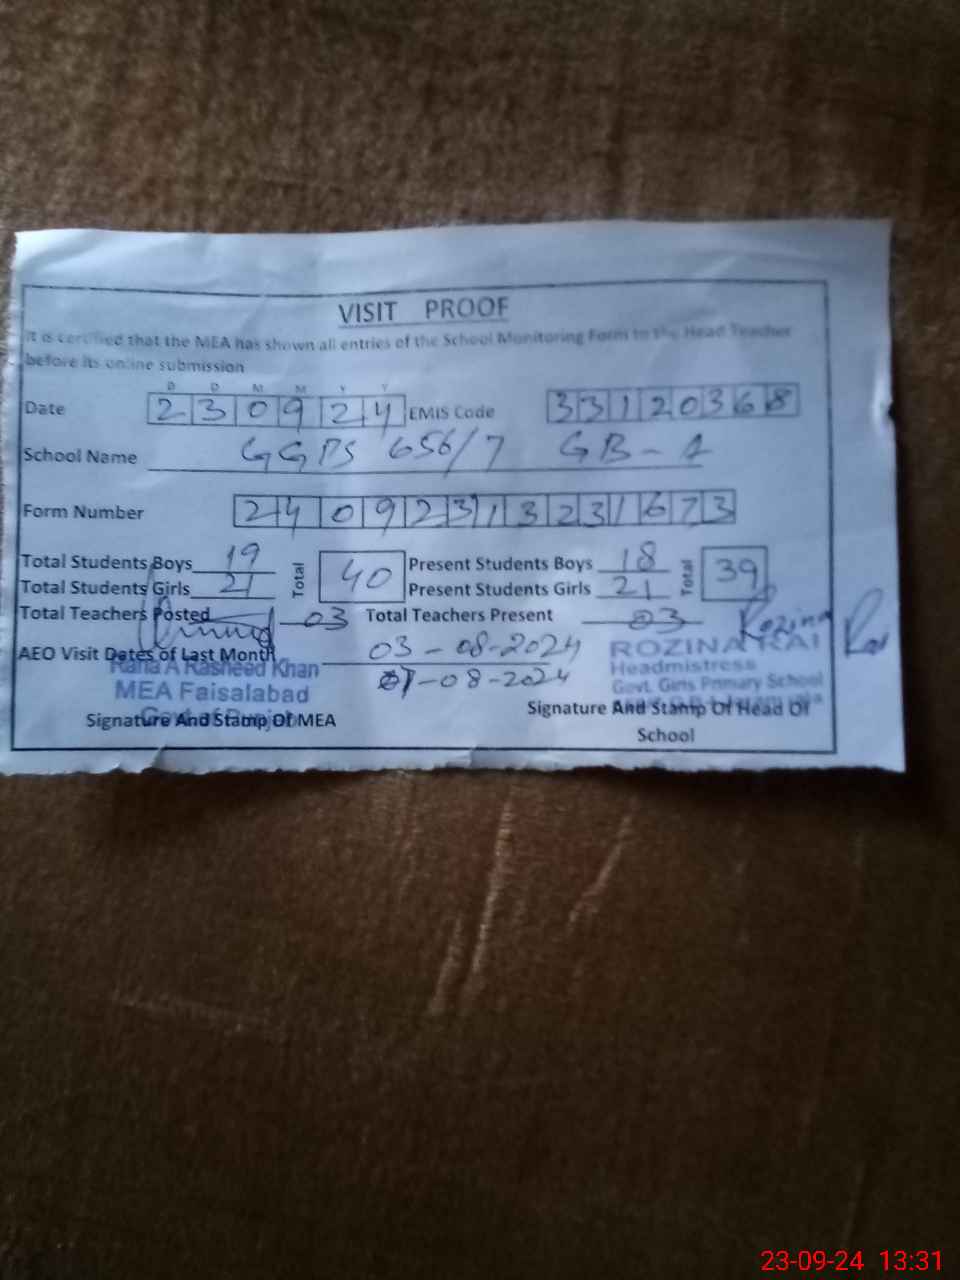 VISIT PROOF
It is certified that the MEA has shown all entries of the School Monitoring Form to the Head Teacher
before its online submission
D D M M Y Y
Date 2 3 0 9 2 4 EMIS Code 3 3 1 2 0 3 6 8
School Name GGPS 656/7 GB-A
Form Number 2 4 0 9 2 3 1 3 2 3 1 6 7 3
Total Students Boys 19 Total 40 Present Students Boys 18 Total 39
Total Students Girls 21 Present Students Girls 21
Total Teachers Posted 03 Total Teachers Present 03 Rozina
AEO Visit Dates of Last Month 03-08-2024 ROZINA RAI
Rana A Rasheed Khan 07-08-2024 Headmistress
MEA Faisalabad Govt. Girls Primary School
Signature And Stamp Of MEA Signature And Stamp Of Head Of
School
23-09-24 13:31